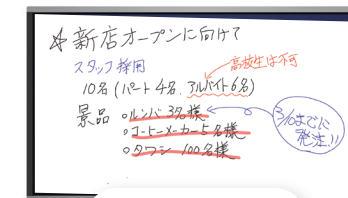 ☆ 新店オープンに向けて
スタッフ採用
高校生は不可
10名(パート4名、アルバイト6名)
景品 ○ルンバ 3名様
○コーヒーメーカー5名様
○タワシ 100名様
3/10までに
発注!!